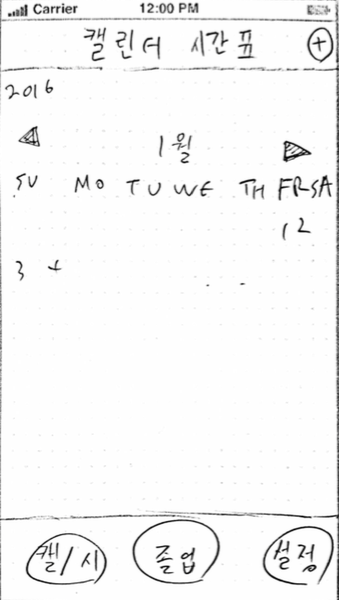 Carrier 12:00 PM
캘린더 시간표 +
2016
1월
SU MO TU WE TH FR SA
1 2
3 4
캘/시 졸업 설정